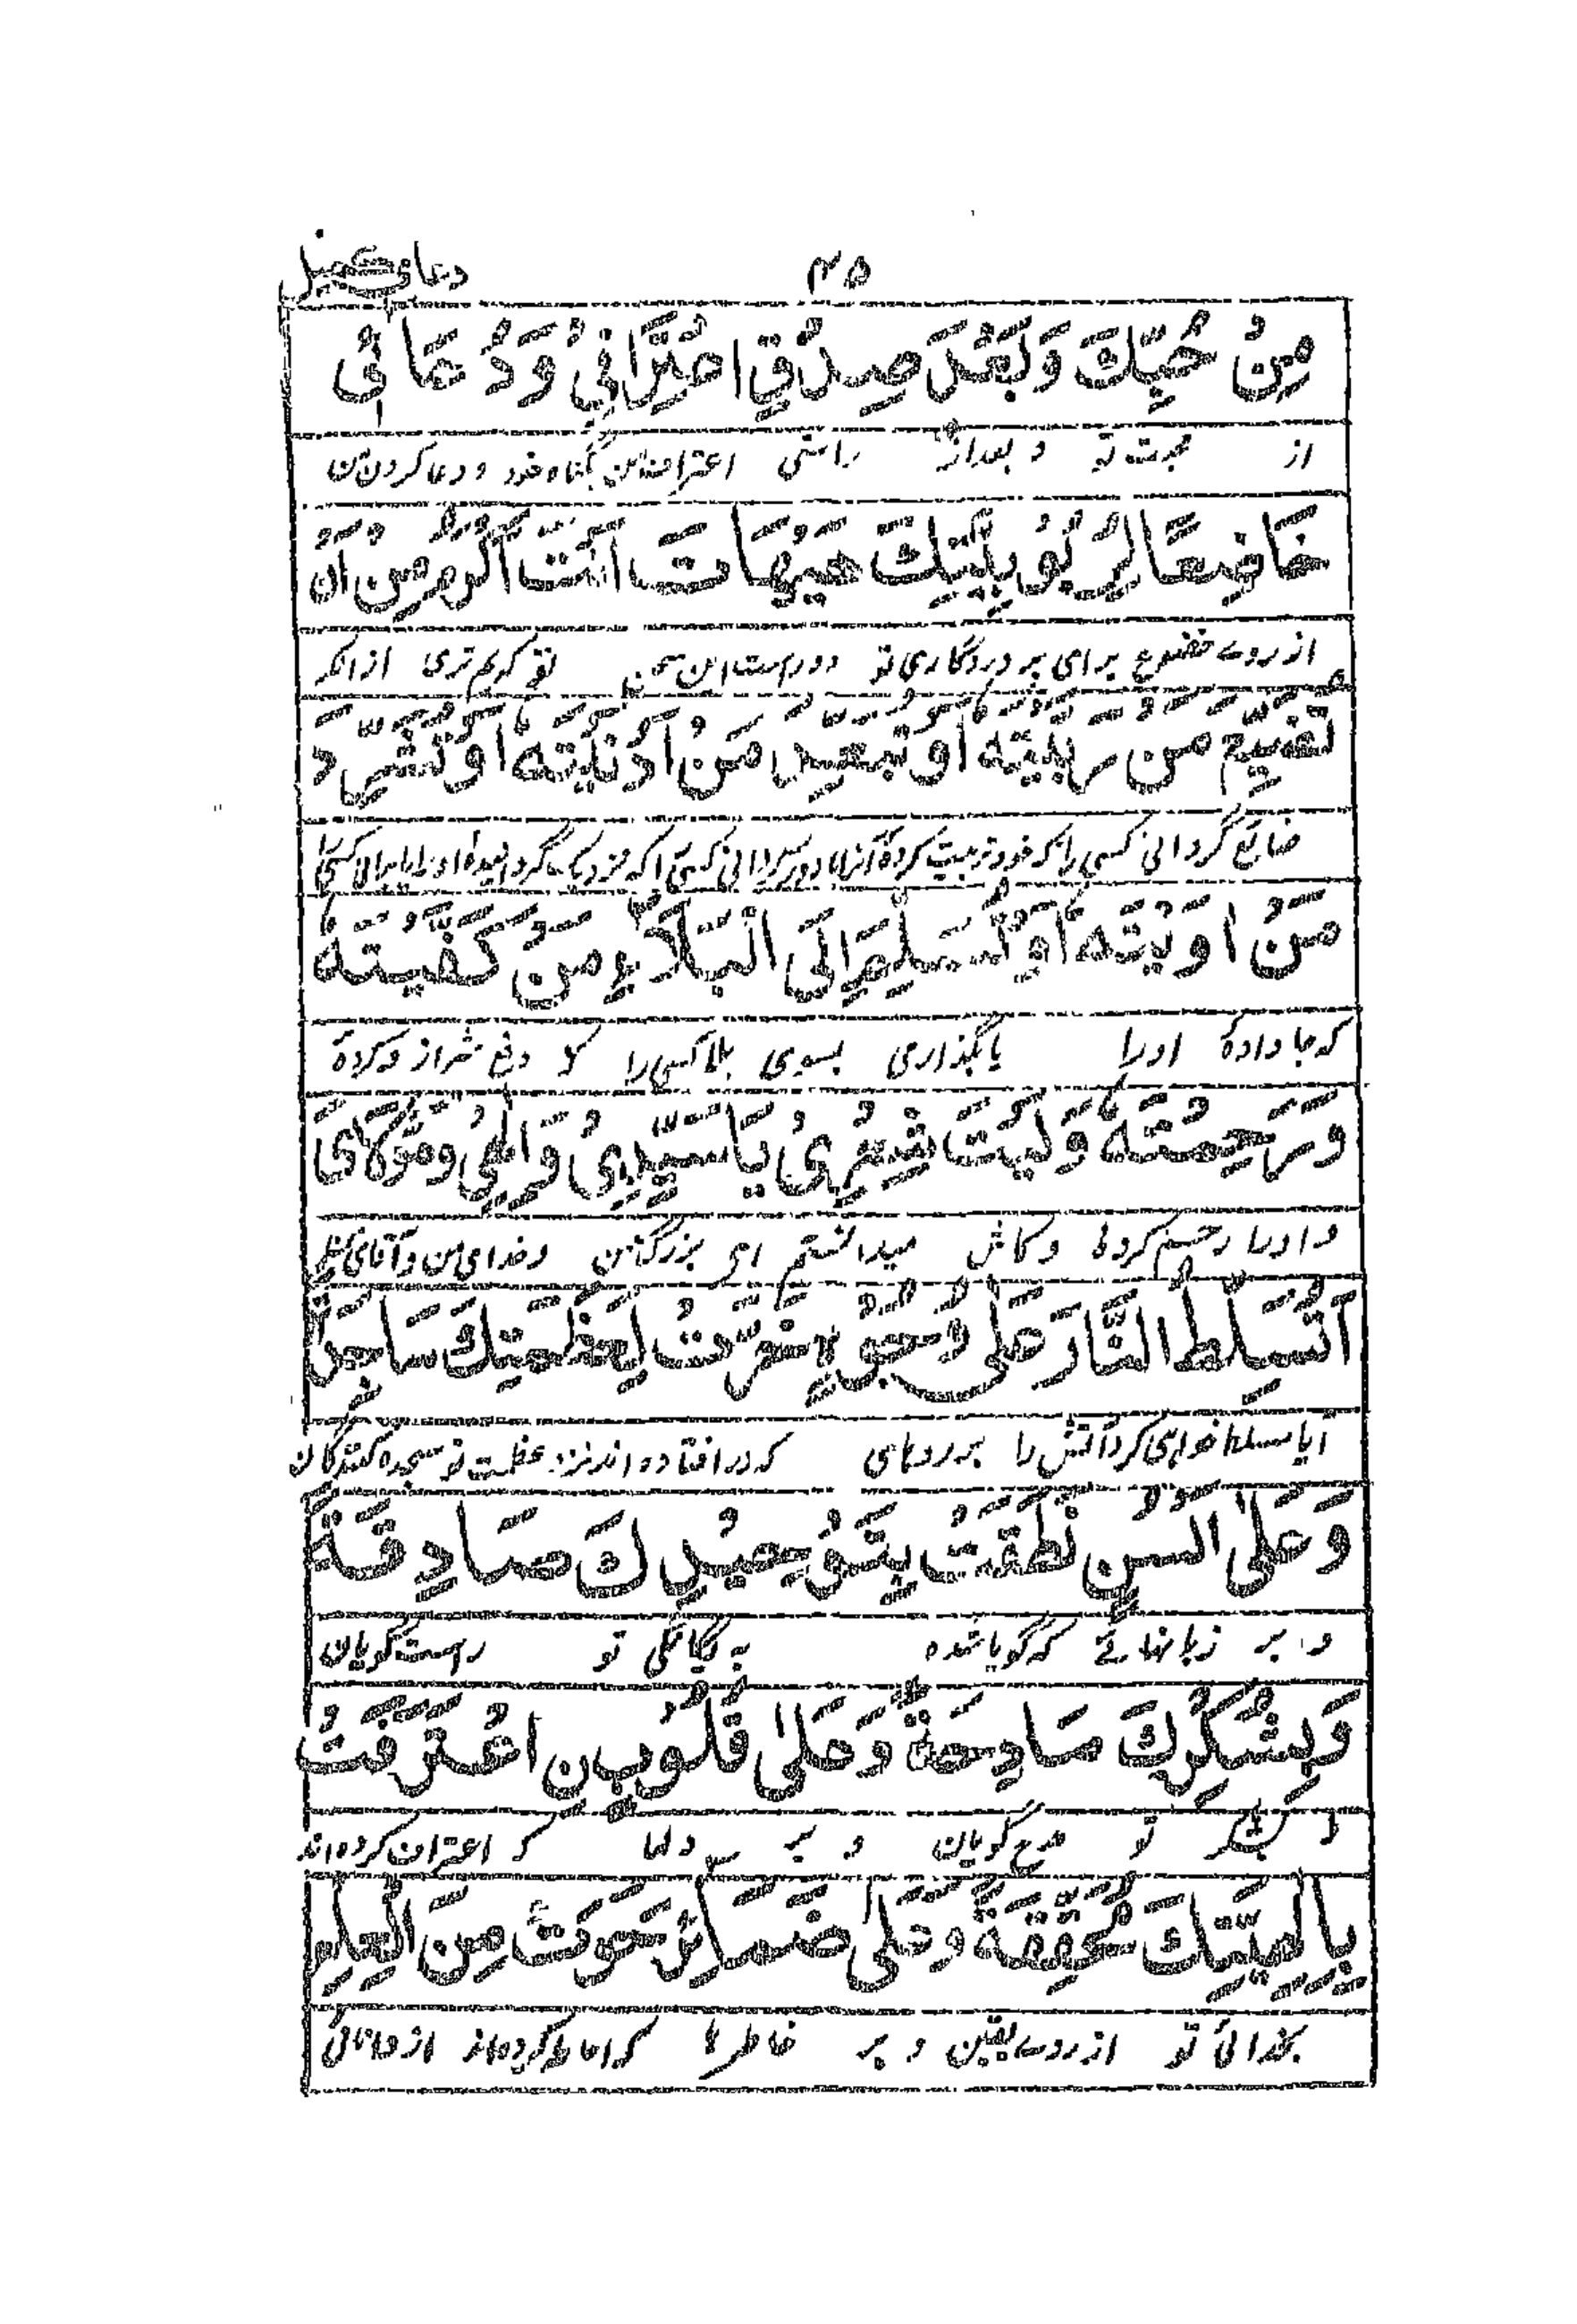 دعای کمیل
۴۵
مِنْ حُبِّكَ وَبَعْدَ صِدْقِ اعْتِرَافِيْ وَدُعَائِيْ
از محبت تو و بعد از راستی اعتراف من بگناه خود و دعا کردن من
خَاضِعًا لِرُبُوْبِيَّتِكَ هَيْهَاتَ اَنْتَ اَكْرَمُ مِنْ اَنْ
از روے خضوع برای پروردگاری تو دور است این سخن تو کریم تری از انکه
تُضَيِّعَ مَنْ رَبَّيْتَهُ اَوْ تُبَعِّدَ مَنْ اَدْنَيْتَهُ اَوْ تُشَرِّدَ
ضایع گردانی کسی را که خود تربیت کردهٔ یا دور گردانی کسی را که نزدیک گردانیدهٔ او را یا برانی کسی را
مَنْ اٰوَيْتَهُ اَوْ تُسَلِّمَ اِلَى الْبَلَاءِ مَنْ كَفَيْتَهُ
که جا دادهٔ اورا یا بگذاری بسوی بلا کسی را که دفع شر از و کردهٔ
وَرَحِمْتَهُ وَلَيْتَ شِعْرِيْ يَا سَيِّدِيْ وَاِلٰهِيْ وَمَوْلَايَ
و اورا رحم کردهٔ و کاش میدانستم ای بزرگ من و خدای من و آقای من
اَتُسَلِّطُ النَّارَ عَلٰى وُجُوْهٍ خَرَّتْ لِعَظَمَتِكَ سَاجِدَةً
آیا مسلط خواهی کرد آتش را بر روهای که در افتاده اند نزد عظمت تو سجده کنندگان
وَعَلٰى اَلْسُنٍ نَطَقَتْ بِتَوْحِيْدِكَ صَادِقَةً
و بر زبانهائے که گویا شده به یگانگی تو راست گویان
وَبِشُكْرِكَ مَادِحَةً وَعَلٰى قُلُوْبٍ نِ اعْتَرَفَتْ
و بشکر تو مدح گویان و بر دلها که اعتراف کرده اند
بِاِلٰهِيَّتِكَ مُحَقِّقَةً وَعَلٰى ضَمَائِرَ حَوَتْ مِنَ الْعِلْمِ
بخدائی تو از روے یقین و بر خاطرها که احاطه کرده اند از دانائی